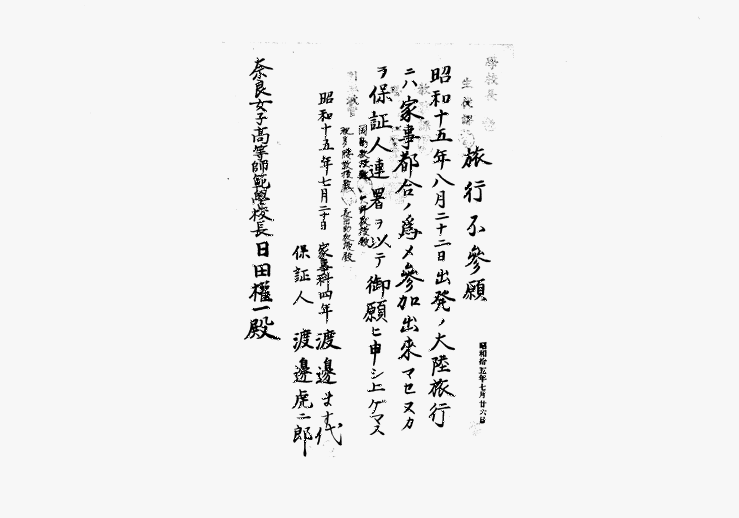 學校長
生徒課
旅行不參願
昭和拾五年七月廿六日
昭和十五年八月二十二日出発ノ大陸旅行
ニハ家事都合ノ爲メ參加出来マセヌカ
ラ保証人連署ヲ以テ御願ヒ申シ上ゲマス
昭和十五年七月二十日
家事科四年 渡邊ます代
保証人 渡邊虎二郎
奈良女子高等師範學校長日田權一殿